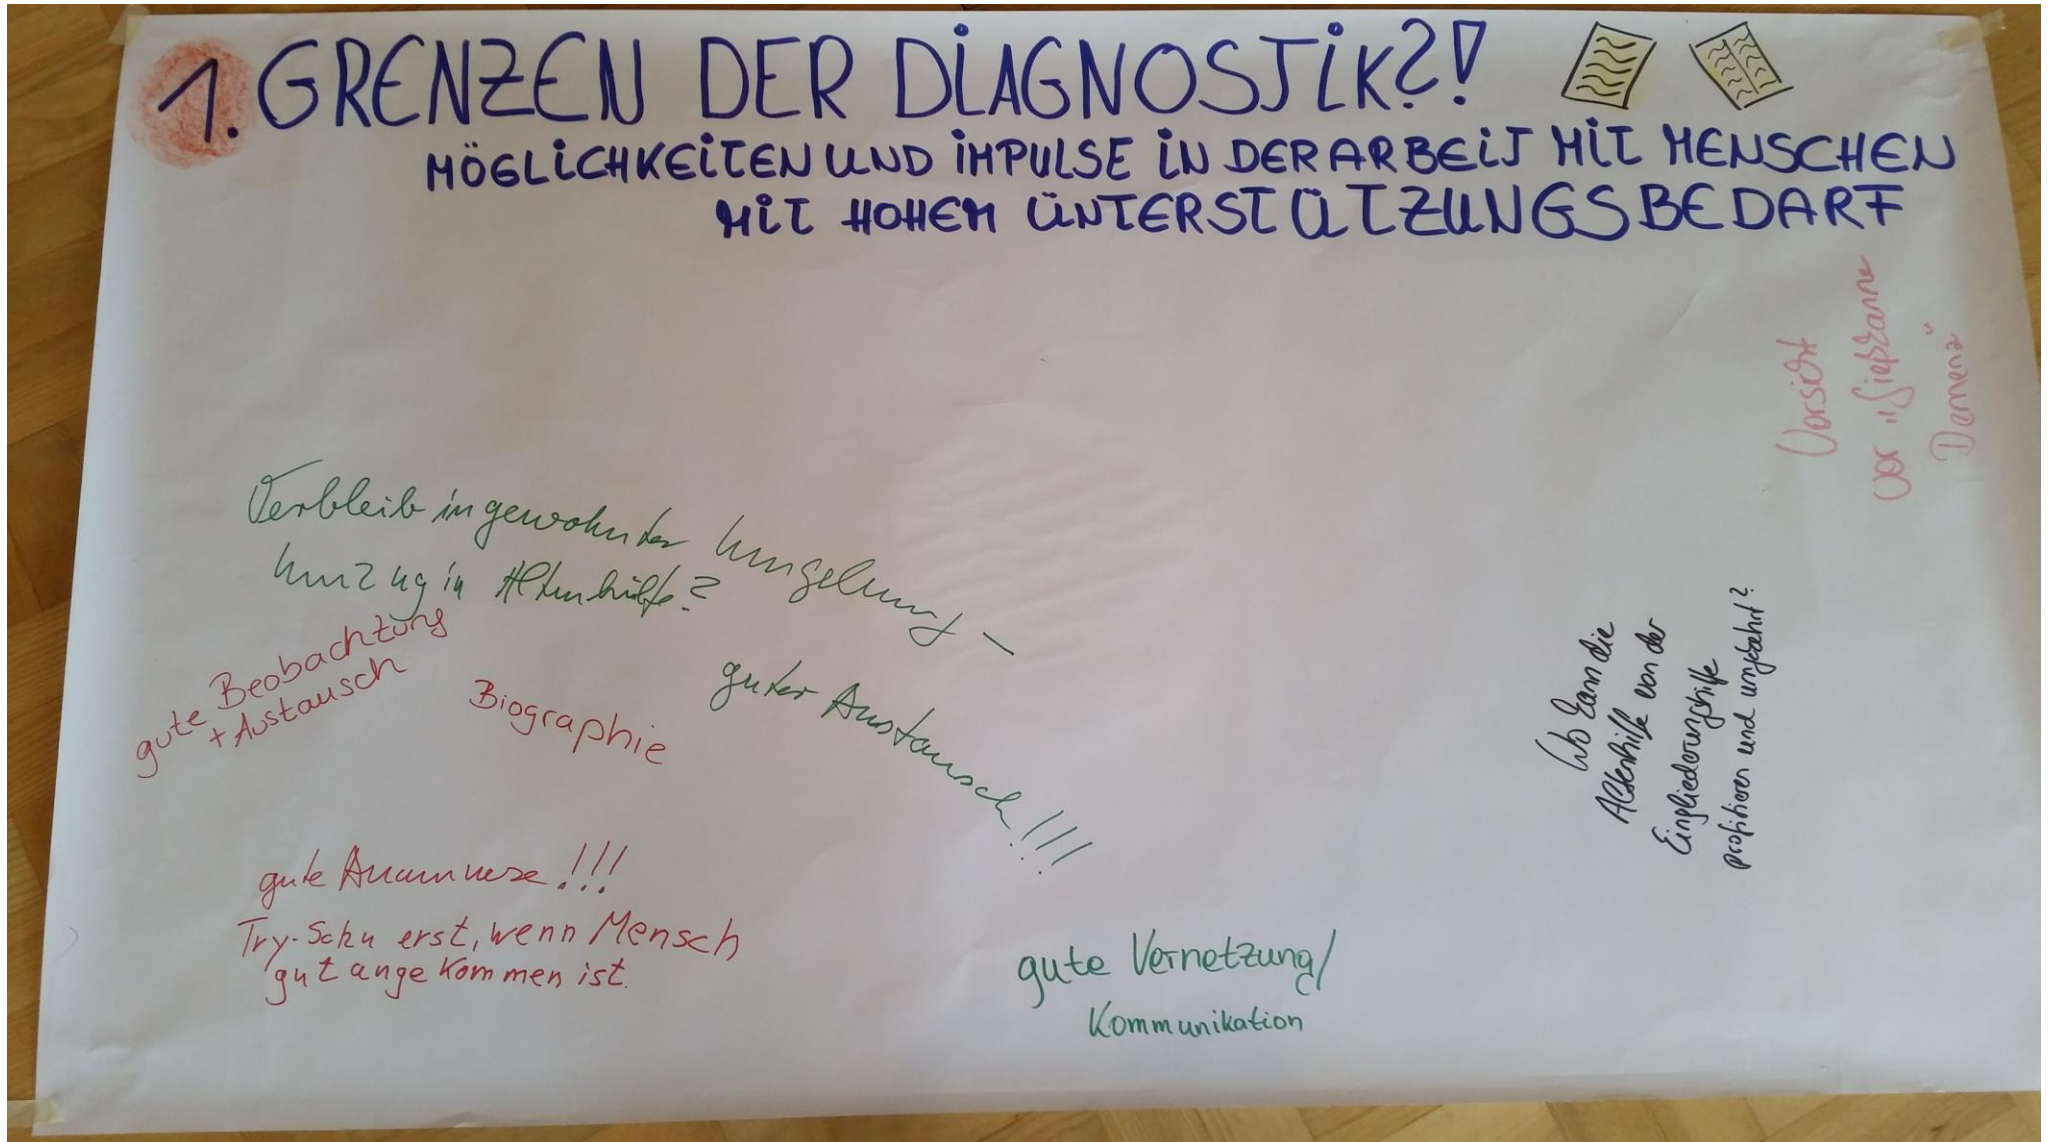 1. GRENZEN DER DIAGNOSTIK?!
MÖGLICHKEITEN UND IMPULSE IN DER ARBEIT MIT MENSCHEN
MIT HOHEM ÜNTERSTÜTZUNGSBEDARF
Vorsicht
vor
Verbleib in gewohnter Umgebung –
Umzug in Altenhilfe?
gute Beobachtung
+ Austausch
Biographie
guter Austausch!!!
Wo kann die
Altenhilfe von der
Eingliederungshilfe
profitieren und umgekehrt?
gute Anamnese!!!
erst, wenn Mensch
gut angekommen ist.
gute Vernetzung/
Kommunikation